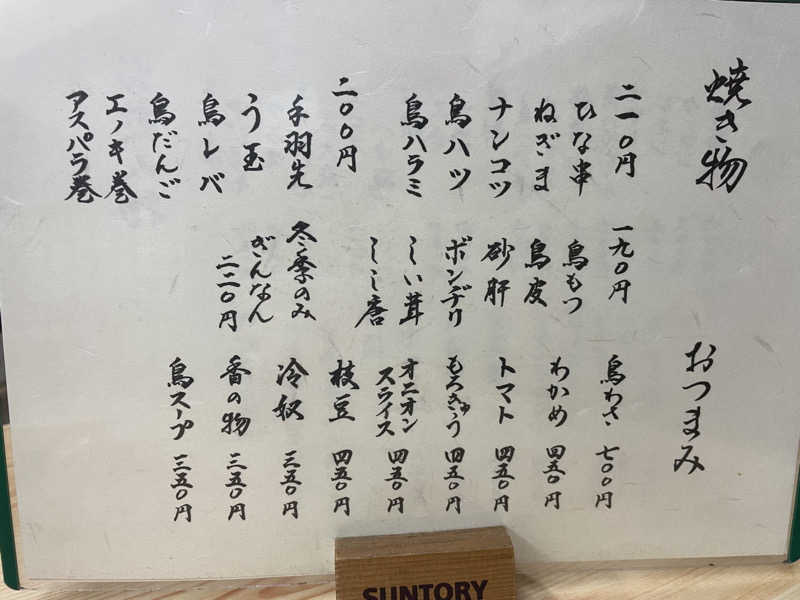 焼き物
二一〇円
ひな串
ねぎま
ナンコツ
鳥ハツ
鳥ハラミ
二〇〇円
手羽先
う玉
鳥レバ
鳥だんご
エノキ巻
アスパラ巻
一九〇円
鳥もつ
鳥皮
砂肝
ボンヂリ
しい茸
しし唐
冬季のみ
ぎんなん
二二〇円
おつまみ
鳥わさ 七〇〇円
わかめ 四五〇円
トマト 四五〇円
もろきゅう 四五〇円
オニオンスライス 四五〇円
枝豆 四五〇円
冷奴 三五〇円
香の物 三五〇円
鳥スープ 三五〇円
SUNTORY